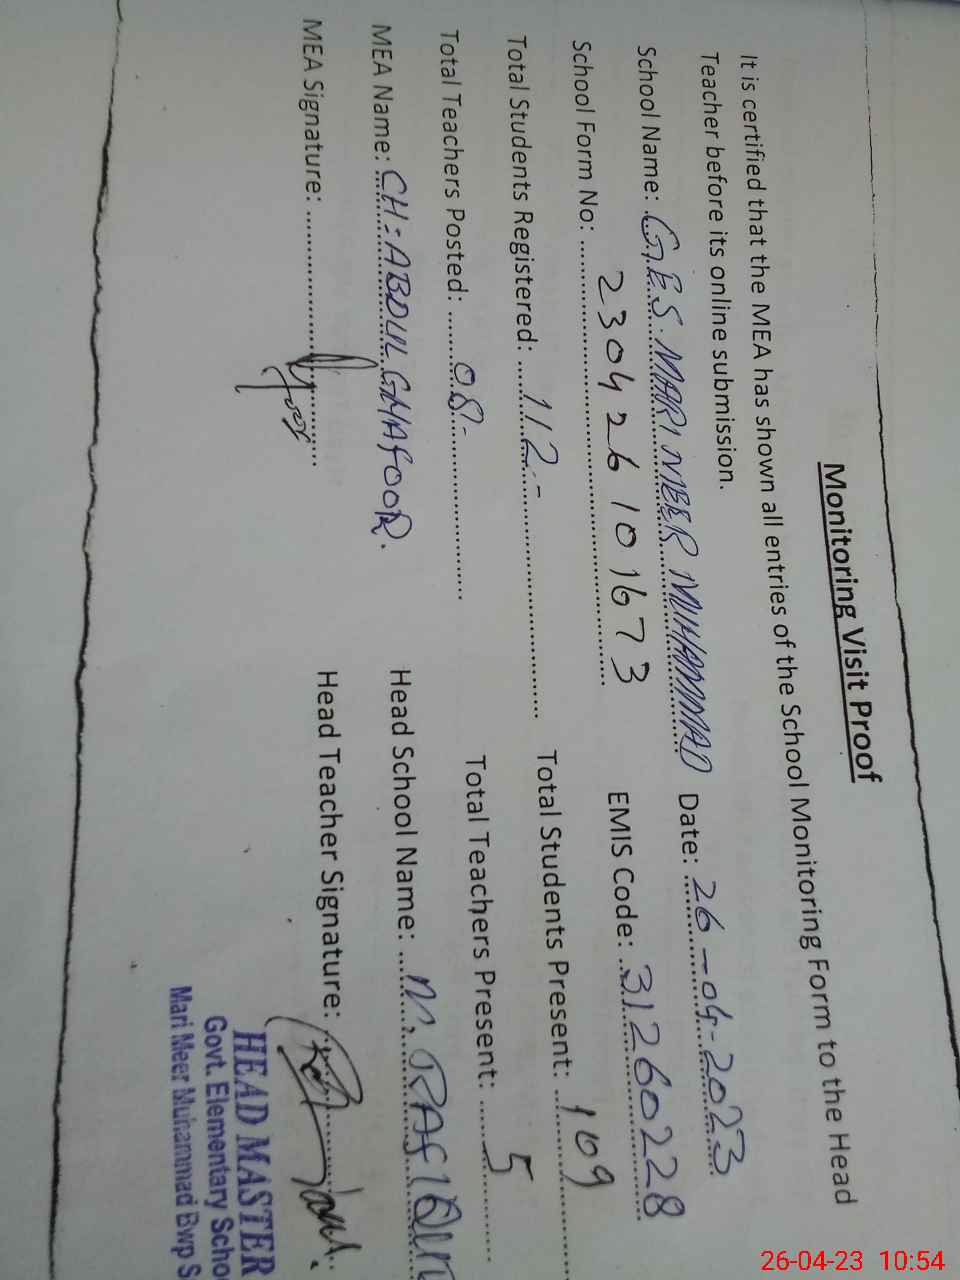 Monitoring Visit Proof
It is certified that the MEA has shown all entries of the School Monitoring Form to the Head
Teacher before its online submission.
School Name: G.E.S. MARI MEER MUHAMMAD Date: 26-04-2023
School Form No: 230426101673 EMIS Code: 31260228
Total Students Registered: 112- Total Students Present: 109
Total Teachers Posted: 08- Total Teachers Present: 5
MEA Name: CH=ABDUL GHAFOOR. Head School Name: M.
MEA Signature: Head Teacher Signature:
HEAD MASTER
Govt. Elementary Schoo
Mari Meer Muhammad Bwp S
26-04-23 10:54